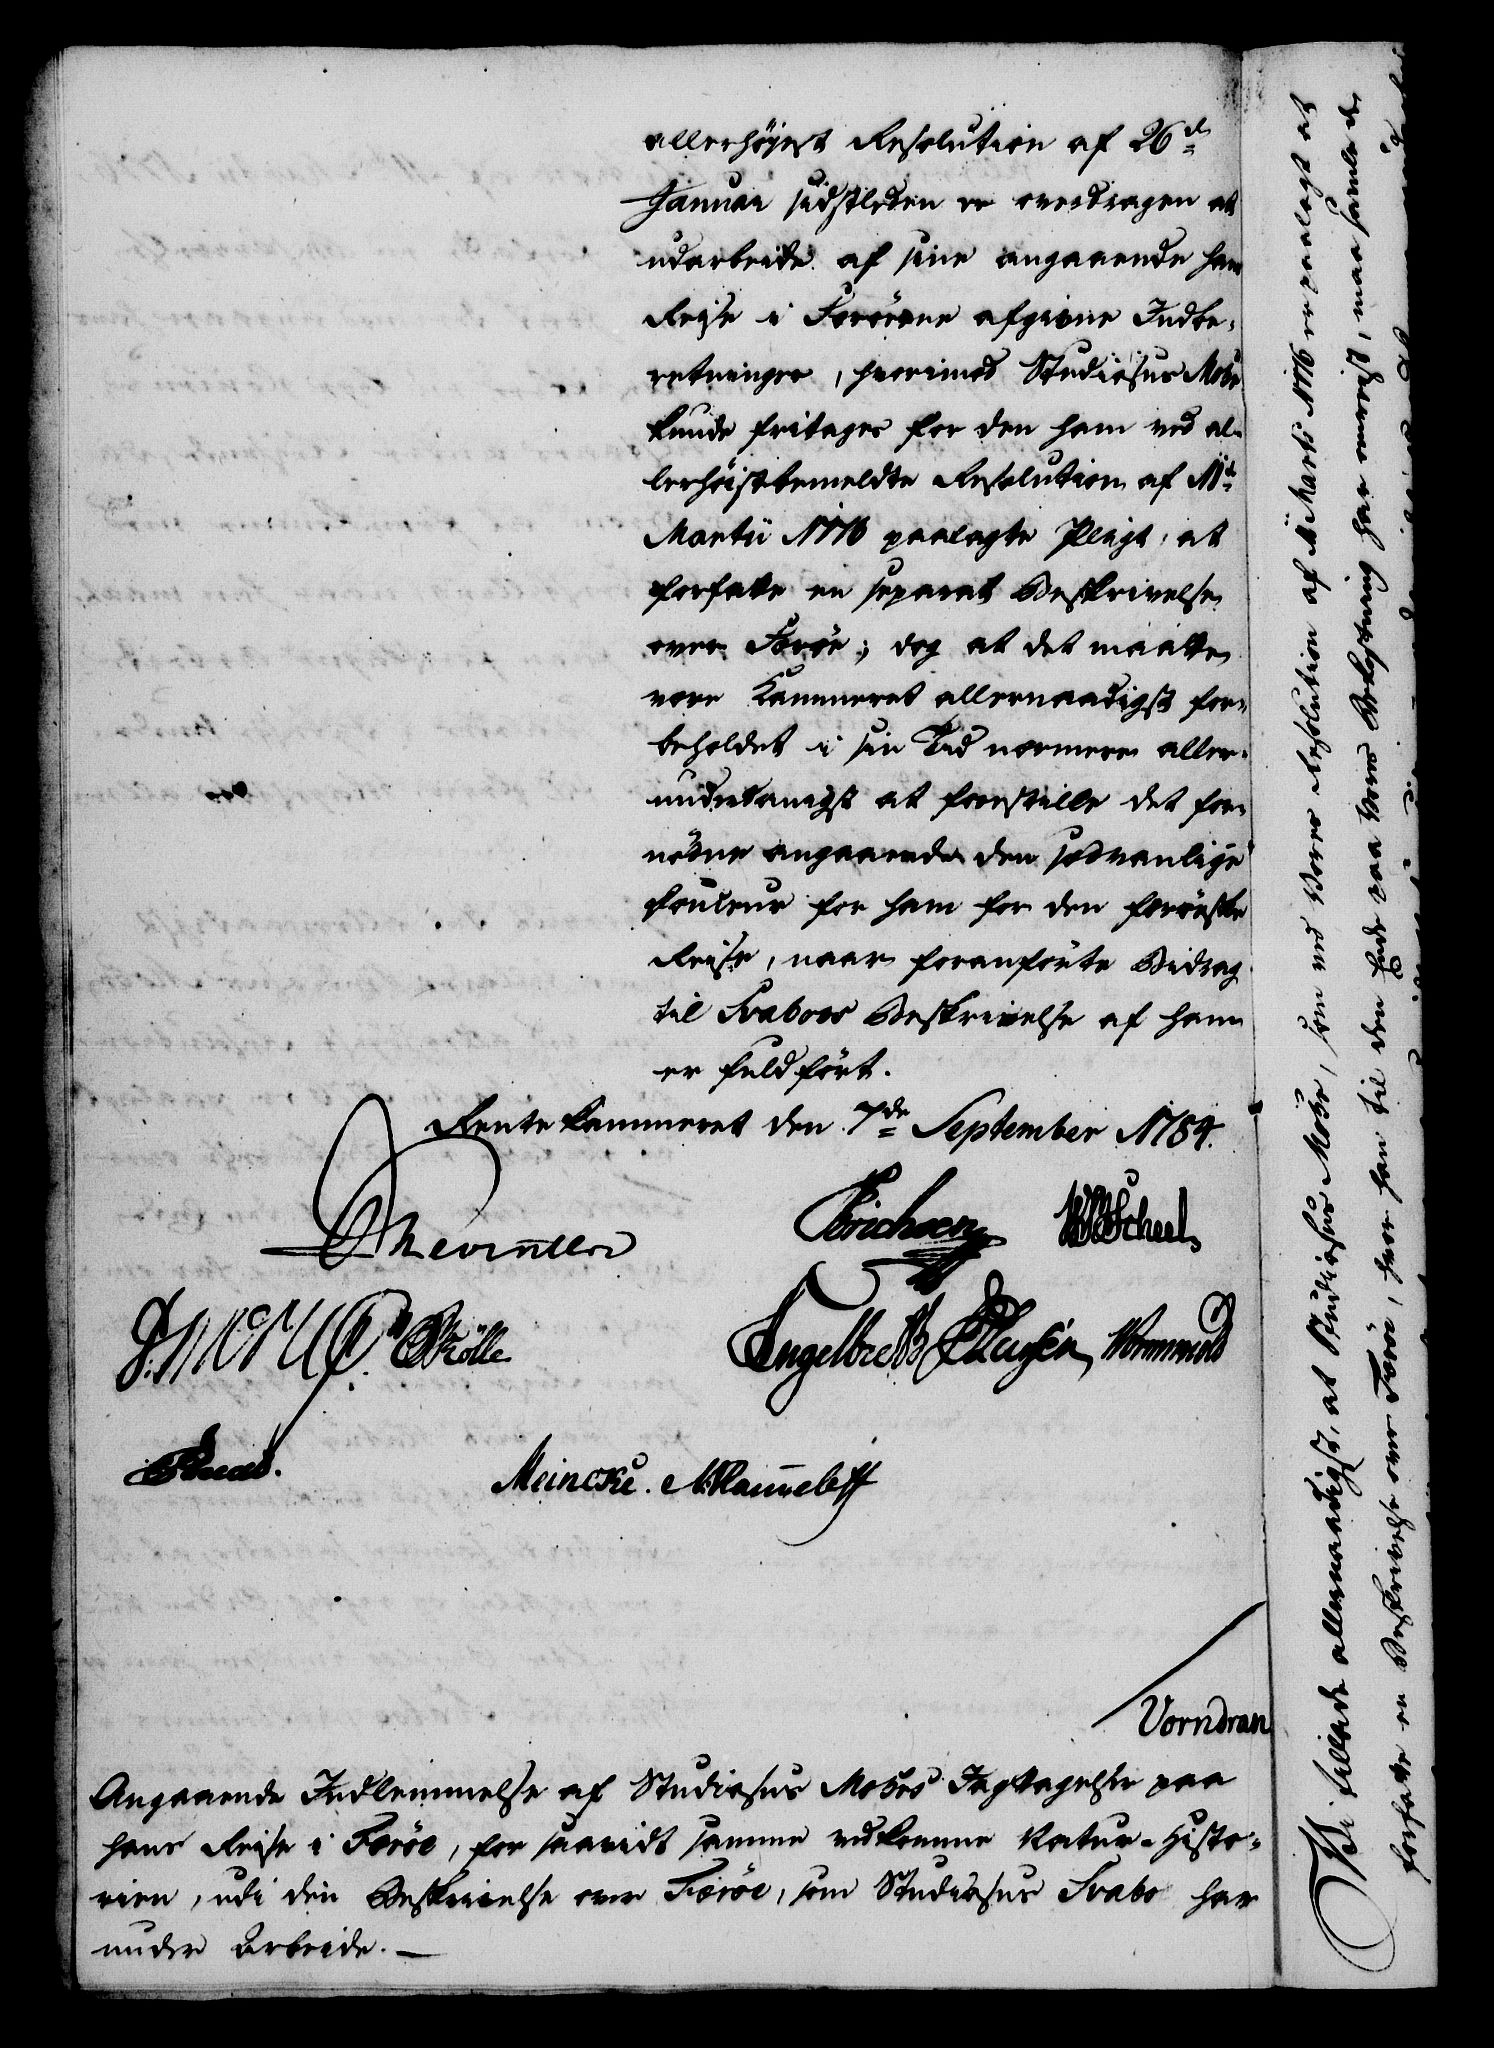 allerhöjest Resolution af 26de
Januar sidstleden er overdragen at
udarbeide af sine angaaende hans
Reise i Færöerne afgivne Indbe-
retninger, hvorimod Studiosus Mohr
kunde fritages for den ham ved al-
lerhöistbemeldte Resolution af 11te
Martii 1776 paalagte Pligt, at
forfatte en separat Beskrivelse
over Færöe; dog at det maatte
være Kammeret allernaadigst for-
beholdet i sin Tid nærmere aller-
underdanigst at forestille det for-
nödne angaaende den sædvanlige
Douceur for ham for den færöeske
Reise, naar foranförte Bidrag
til Svaboes Beskrivelse af ham
er fuldfört.
Rentekammeret den 7de September 1784.
Reventlow
Erichsen WScheel
Engelbret Wormwold
Meincke. Rammeleff
Vorndran
Angaaende Indlemmelse af Studiosus Mohrs Iagttagelse paa
hans Reise i Færöe, for saavidt samme vedkomme Natur-Histo-
rien, udi den Beskrivelse over Færöe, som Studiosus Svabo har
under Arbeide. —
Vi tillade allernaadigst, at Studiosus Mohr, som ved Vores Resolution af 11 Marts 1776 er paalagt at
forfatte en Beskrivelse over Færöe, hvor han til den Ende paa Vores Bekostning har været, maa samle de